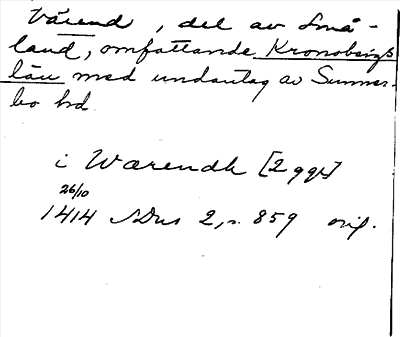 Värend, del av Små-
land, omfattande Kronobergs
län med undantag av Sunner-
bo hd
i Wærendh [2 ggr]
26/10
1414 SDns 2, s. 859 orig.